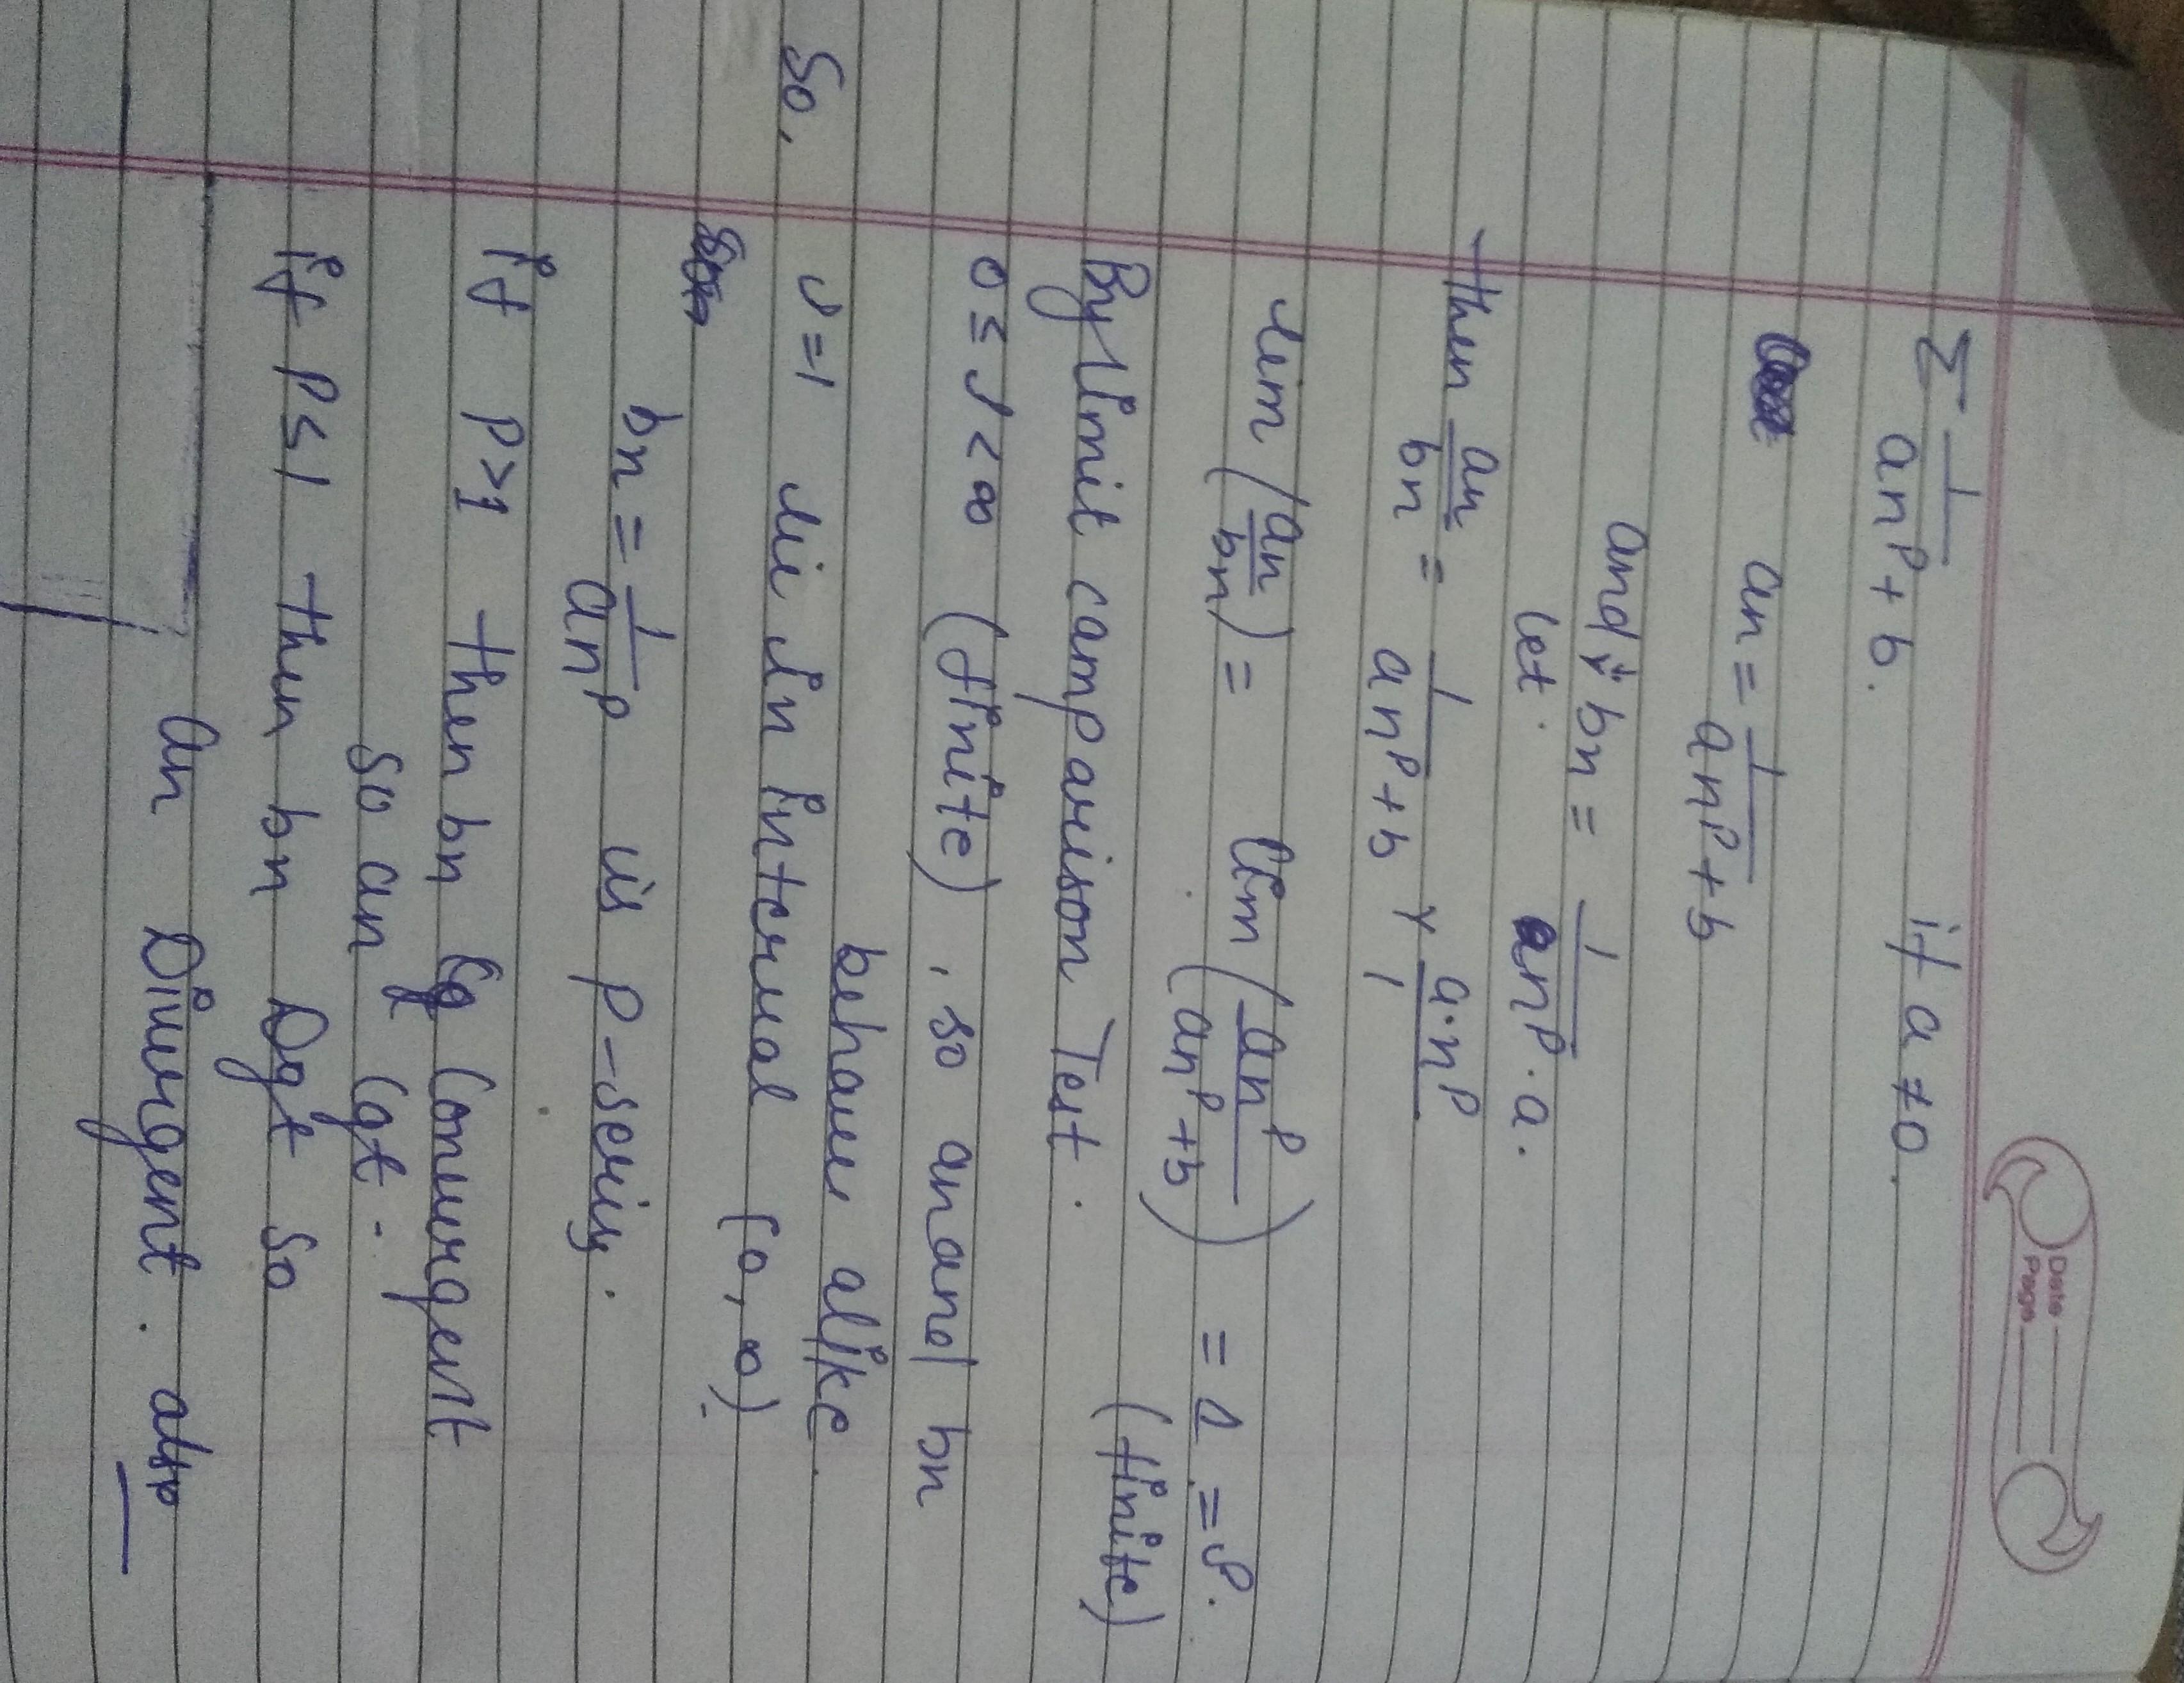 Date
Page
Σ 1/(an^p + b). if a ≠ 0.
an = 1/(an^p + b)
and bn = 1/(an^p . a.
let.
then an/bn = 1/(an^p + b) × a.n^p/1
lim (an/bn) = lim (an^p/(an^p + b)) = 1 = l.
(finite)
By limit comparison Test.
0 ≤ l < ∞ (finite), so an and bn
behave alike.
So, l = 1 lie in interval [0, ∞).
bn = 1/an^p is p-series.
if P>1 then bn Convergent
so an Cgt.
if P≤1 then bn Dgt so
an Divergent. also